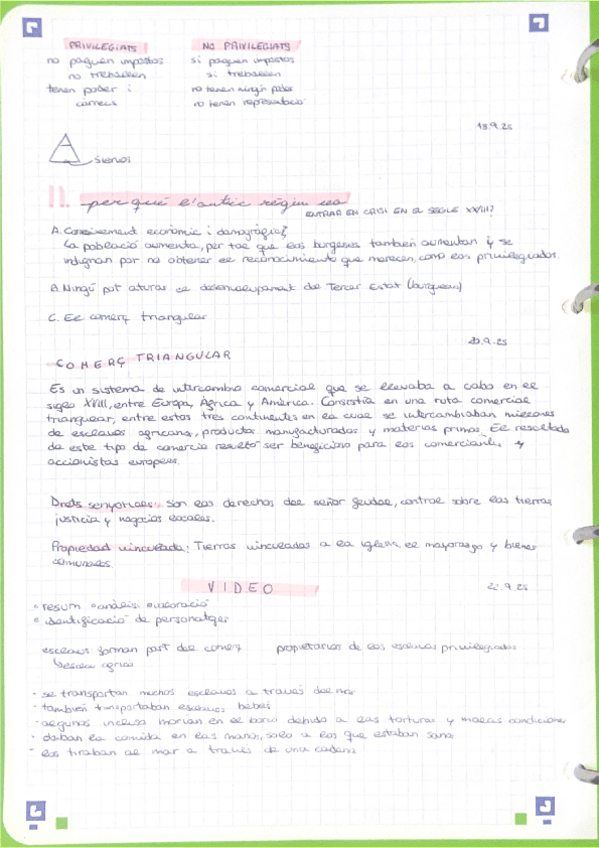 PRIVILEGIATS NO PRIVILEGIATS
no paguen impostos si paguen impostos
no treballen si treballen
tenen poder i no tenen ningún poder
càrrecs no tenen representació
18.9.25
siervos
11. per què l'antic règim va
ENTRAR EN CRISI EN EL SEGLE XVIII?
A. Creixement econòmic i demogràfic
La població aumenta, per tal que los burgeses tambien aumentan y se
indignan por no obtener el reconocimiento que merecen, como los privilegiados.
B. Ningú pot aturar el desenvolupament del Tercer Estat (burguesia)
C. El comerç triangular
20.9.25
COMERÇ TRIANGULAR
Es un sistema de intercambio comercial que se llevaba a cabo en el
siglo XVIII, entre Europa, África y América. Consistía en una ruta comercial
triangular, entre estos tres continentes en la cual se intercambiaban millones
de esclavos africanos, productos manufacturados y materias primas. El resultado
de este tipo de comercio resultó ser beneficioso para los comerciantes y
accionistas europeos.
Drets senyorials: Son los derechos del señor feudal, control sobre las tierras
justicia y negocios locales.
Propiedad vinculada: Tierras vinculadas a la iglesia, el mayorazgo y bienes
comunales.
VIDEO 22.9.25
• resum • anàlisi • valoració
• identificació de personatges
esclaus: forman part del comerç propietarios de los esclavos privilegiados
- se transportan muchos esclavos a través del mar
- también transportaban esclavos bebés
- algunos incluso morían en el barco debido a las torturas y malas condiciones
- daban la comida en las manos, solo a los que estaban sanos
- los tiraban al mar a través de una cadena